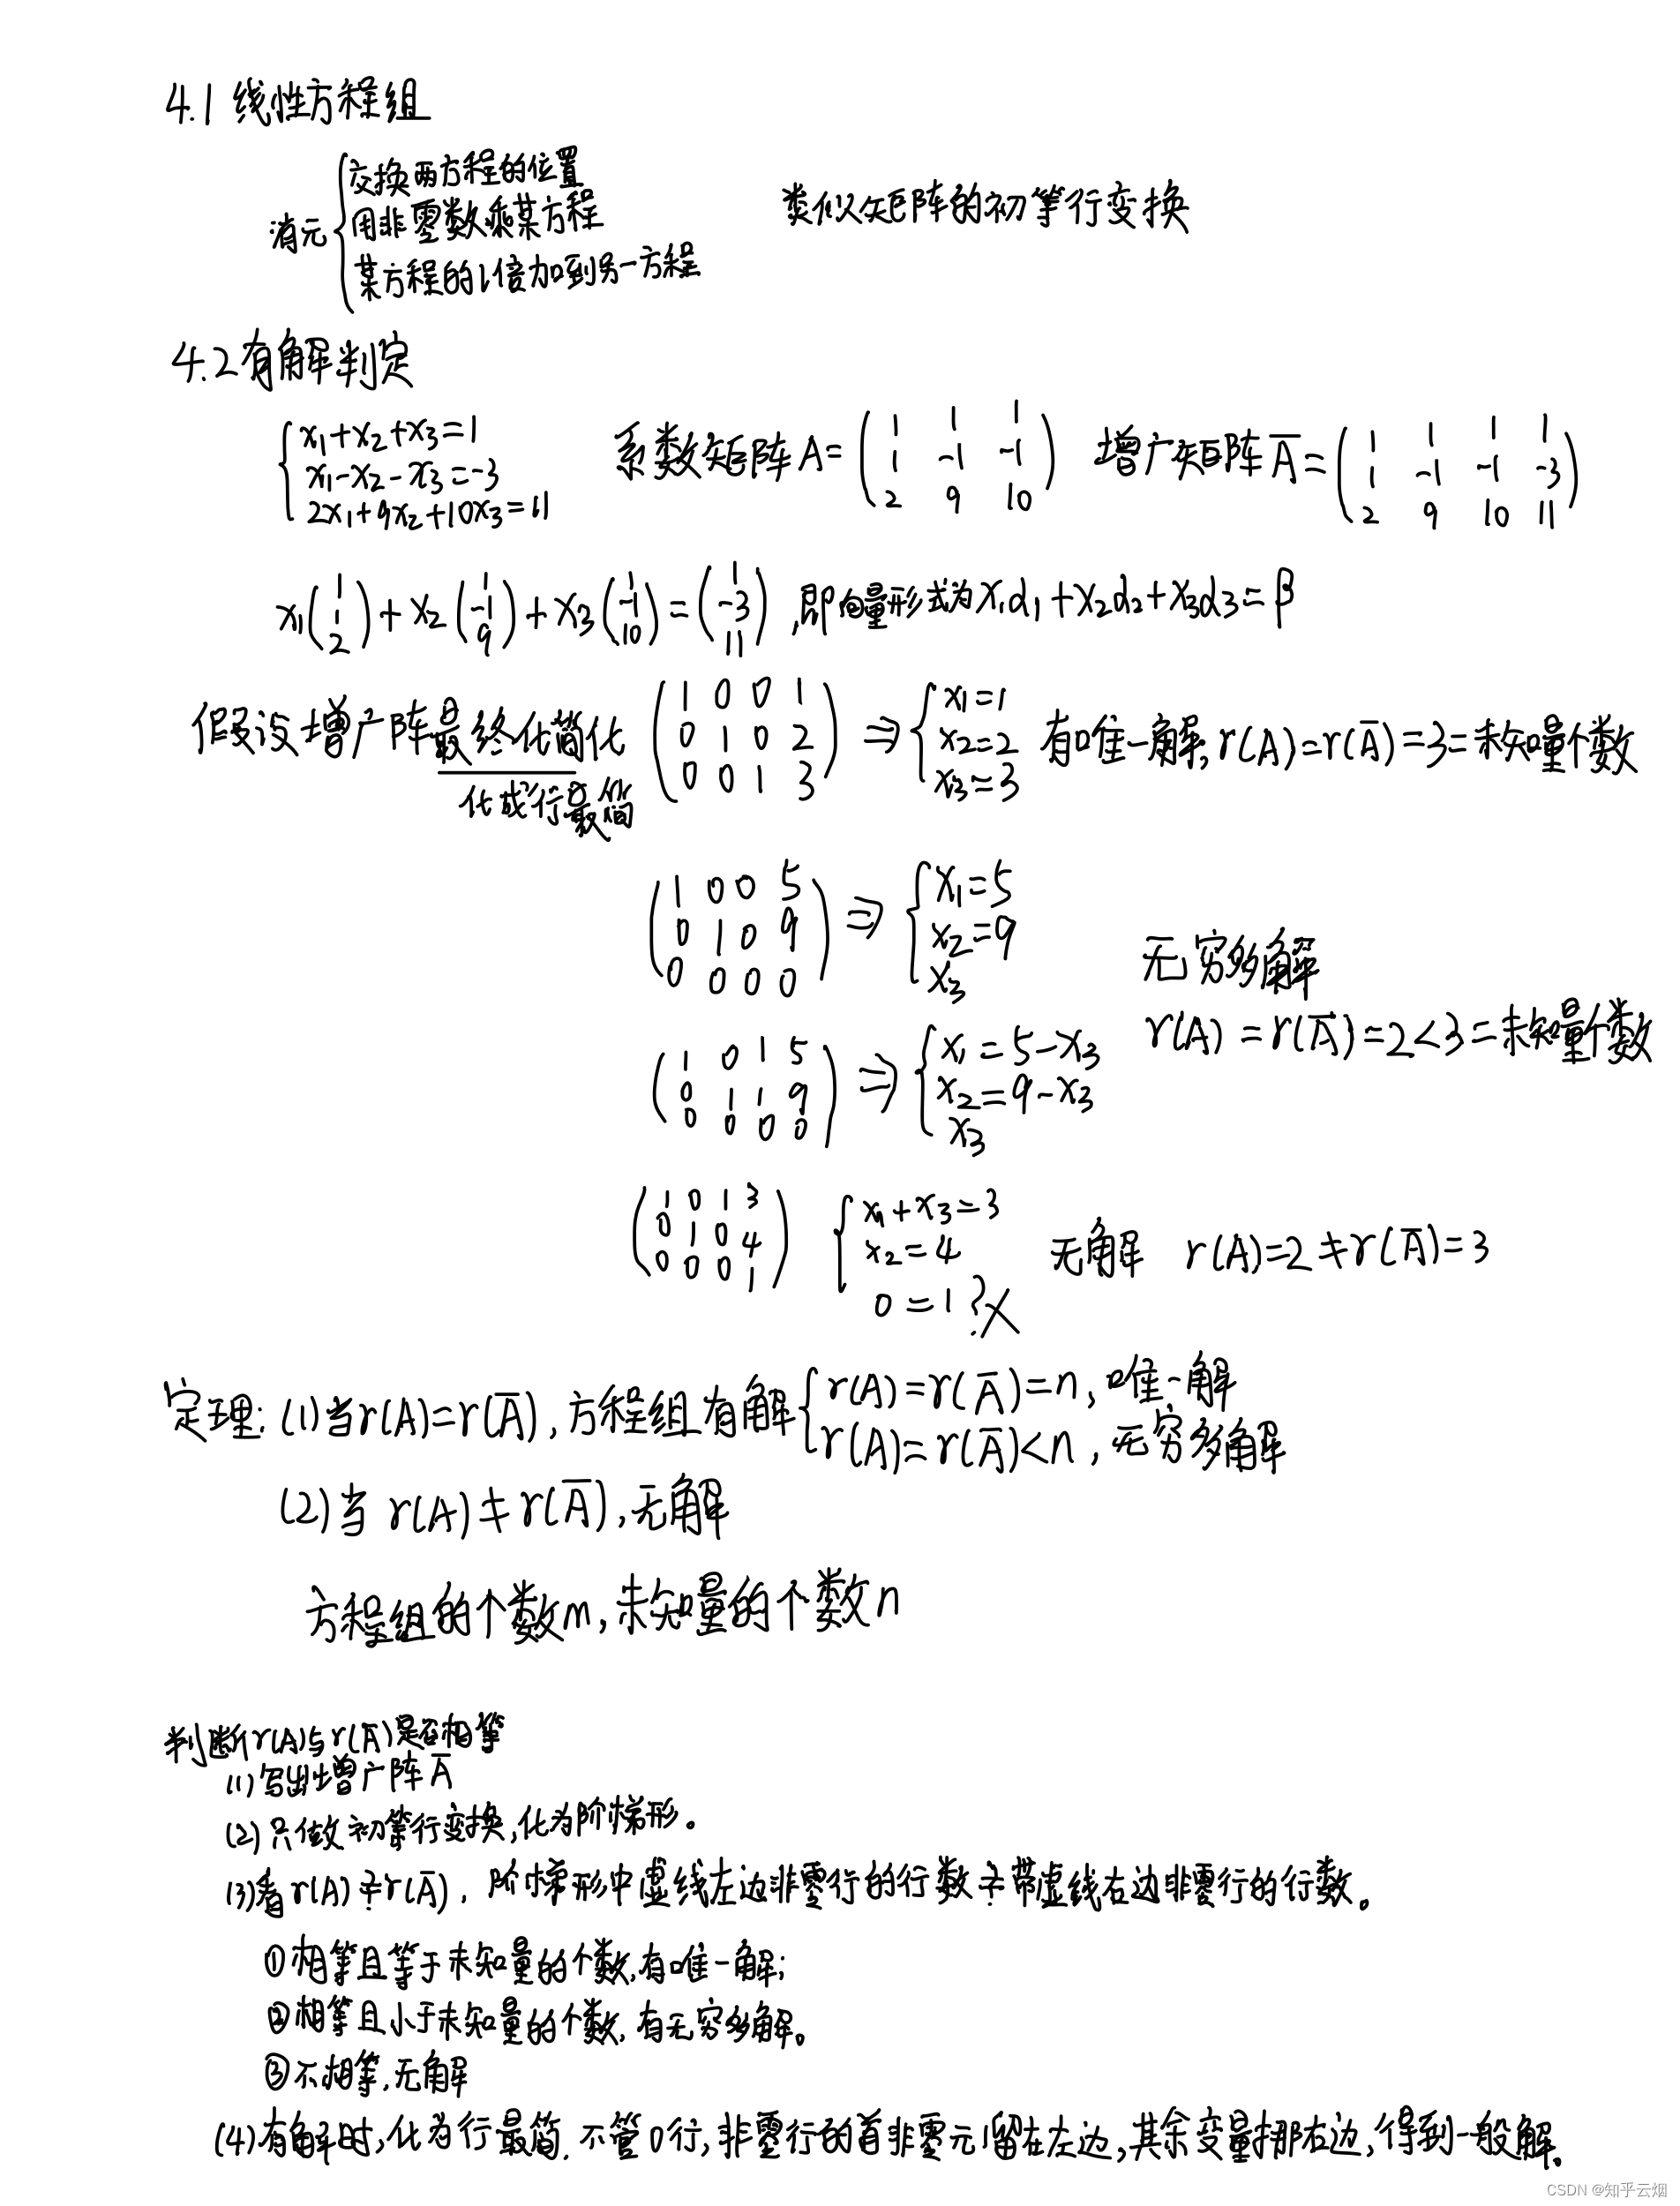 4.1 线性方程组
消元 { 交换两方程的位置
用非零数乘某方程
某方程的l倍加到另一方程
类似矩阵的初等行变换
4.2 有解判定
{ x₁+x₂+x₃=1
x₁-x₂-x₃=-3
2x₁+9x₂+10x₃=11
系数矩阵 A= ( 1 1 1
1 -1 -1
2 9 10 )
增广矩阵 A̅= ( 1 1 1 1
1 -1 -1 -3
2 9 10 11 )
x₁(1 1 2) + x₂(1 -1 9) + x₃(1 -1 10) = (1 -3 11), 即向量形式为 x₁α₁+x₂α₂+x₃α₃=β
假设增广阵最终化简化
化成行最简
( 1 0 0 1
0 1 0 2
0 0 1 3 )
⇒ { x₁=1
x₂=2
x₃=3
有唯一解, r(A)=r(A̅)=3=未知量个数
( 1 0 0 5
0 1 0 9
0 0 0 0 )
⇒ { x₁=5
x₂=9
x₃
无穷多解
r(A)=r(A̅)=2<3=未知量个数
( 1 0 1 5
0 1 1 9
0 0 0 0 )
⇒ { x₁=5-x₃
x₂=9-x₃
x₃
( 1 0 1 3
0 1 0 4
0 0 0 1 )
{ x₁+x₃=3
x₂=4
0=1?X
无解 r(A)=2≠r(A̅)=3
定理: (1)当r(A)=r(A̅), 方程组有解 { r(A)=r(A̅)=n, 唯一解
r(A)=r(A̅)<n, 无穷多解
(2)当 r(A)≠r(A̅), 无解
方程组的个数m, 未知量的个数n
判断r(A)与r(A̅)是否相等
(1)写出增广阵 A̅
(2)只做初等行变换, 化为阶梯形。
(3)看r(A)≟r(A̅), 阶梯形中虚线左边非零行的行数≟带虚线右边非零行的行数。
①相等且等于未知量的个数, 有唯一解;
②相等且小于未知量的个数, 有无穷多解。
③不相等, 无解
(4)有解时, 化为行最简. 不管0行, 非零行的首非零元1留在左边, 其余变量挪右边, 得到一般解。
CSDN @知乎云烟